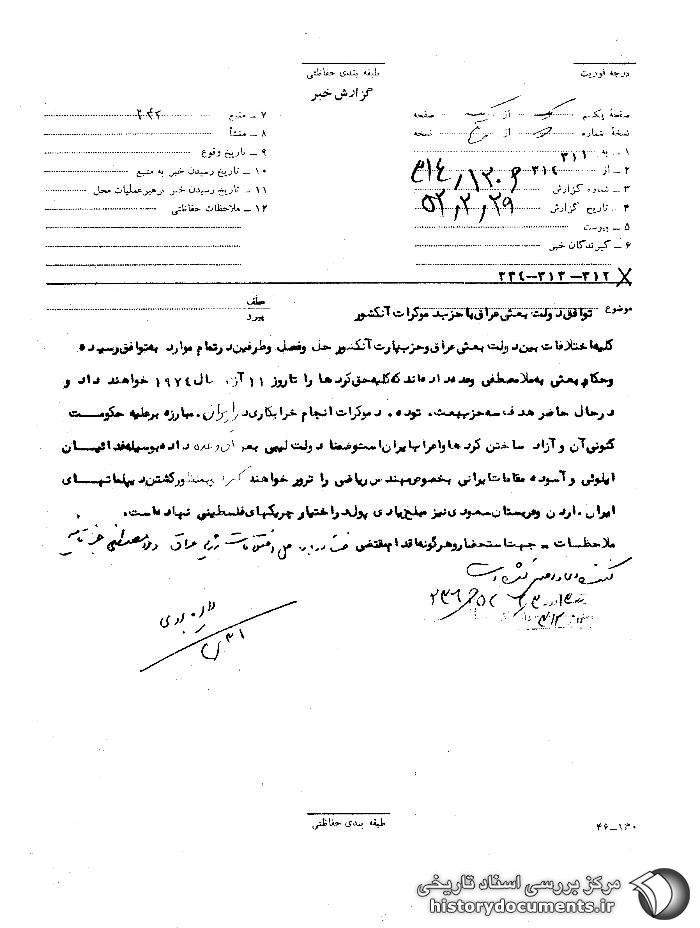 درجه فوریت
طبقه بندی حفاظتی
گزارش خبر
صفحهٔ یکم از صفحه
نسخهٔ شماره از نسخه
۱ ـ به ۳۱۱
۲ ـ از ۳۱۲
۳ ـ شماره گزارش ۳۱۴/۱۳۰۶
۴ ـ تاریخ گزارش ۵۲/۲/۲۹
۵ ـ پیوست
۶ ـ گیرندگان خبر
۷ ـ مقدم
۸ ـ منشأ
۹ ـ تاریخ وقوع
۱۰ ـ تاریخ رسیدن خبر به منبع
۱۱ ـ تاریخ رسیدن خبر برهبر عملیات محل
۱۲ ـ ملاحظات حفاظتی
۳۱۲-۳۱۳-۲۳۴
عطف
پیرو
موضوع توافق دولت بعثی عراق با حزب دموکرات آنکشور
کلیه اختلافات بین دولت بعثی عراق و حزب پارت آنکشور حل و فصل و طرفین در تمام موارد به توافق رسیده
و حکام بعثی به ملا مصطفی وعده داده‌اند که کلیه حق کردها را تا روز ۱۱ سال ۱۹۷۴ خواهند داد و
در حال حاضر هدف سه حزب بعث، توده، دموکرات انجام خرابکاری در ایران، مبارزه بر علیه حکومت
کنونی آن و آزاد ساختن کردها و اعراب ایران است و ضمنا دولت لیبی بعراق وعده داده بوسیله فدائیان
ایلوئی و آسوده مقامات ایرانی بخصوص مهندس ریاضی را ترور خواهند کرد و بمنظور کشتن دیپلماتهای
ایران، اردن و عربستان سعودی نیز مبلغ زیادی پول در اختیار چریکهای فلسطینی نهاده است.
ملاحظات - جهت استحضار و هرگونه اقدام مقتضی
طبقه بندی حفاظتی
۱۳۰-۴۶
مرکز بررسی اسناد تاریخی
historydocuments.ir